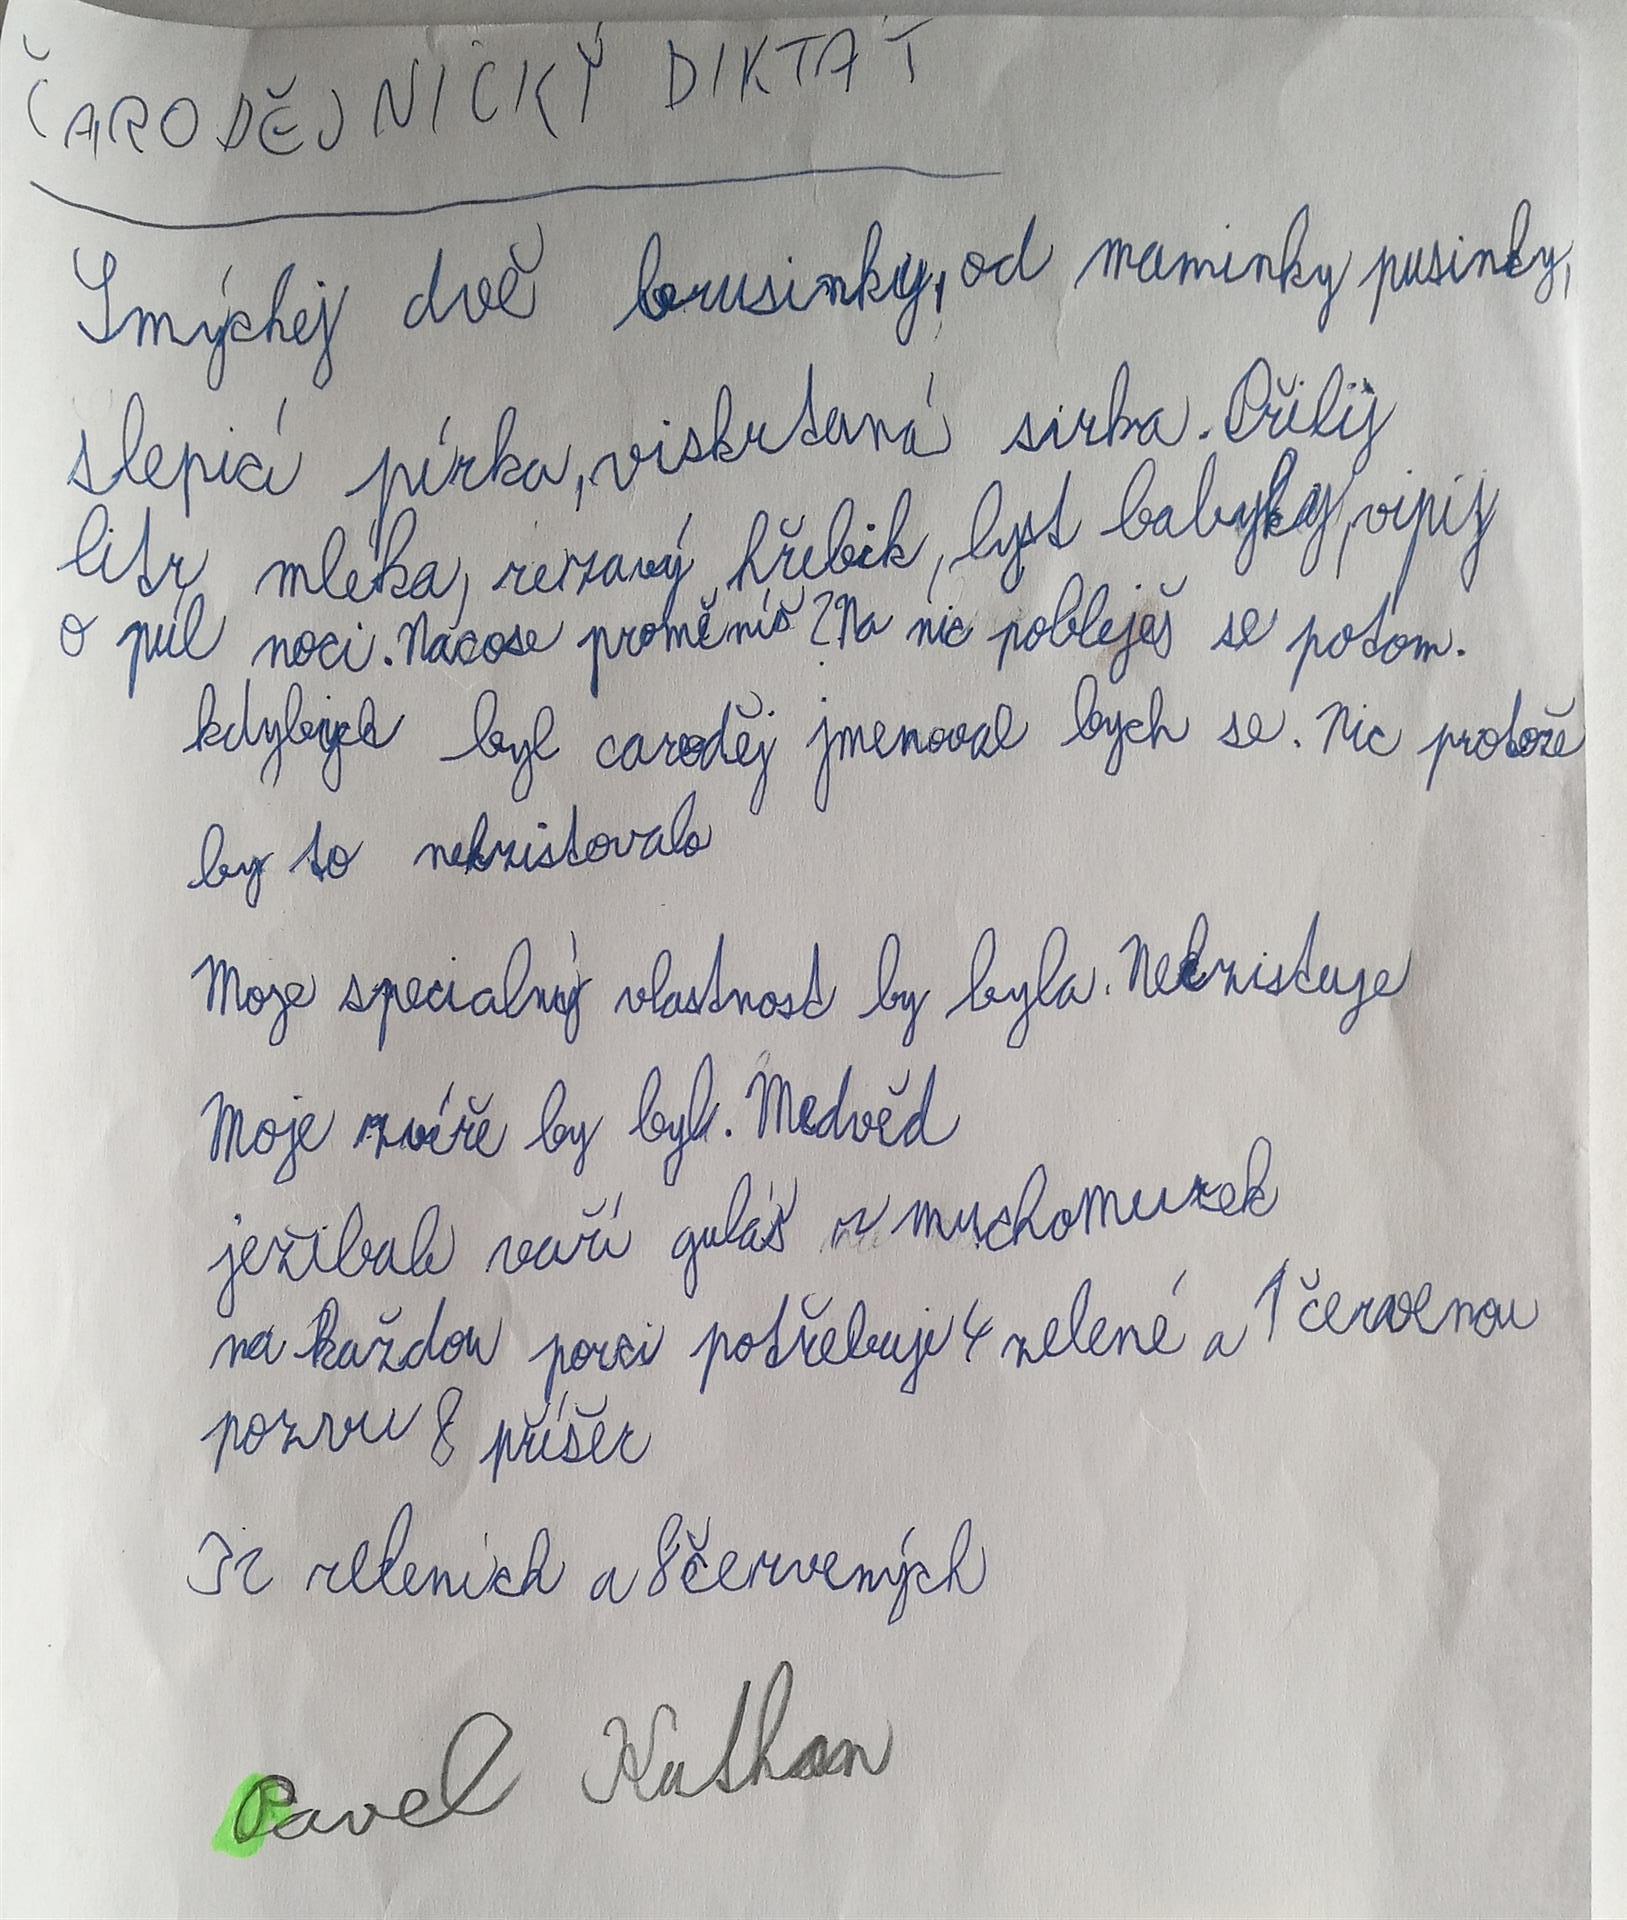 ČARODĚJNICKÝ DIKTÁT
Smýchej dvě brusinky, od maminky pusinky,
slepicí pírka, viskrtaná sirka. Přilij
litr mléka, rezavý hřebik, lyst babyky, vipij
o púl noci. Nacose proměníš? Na nic pobleješ se potom.
kdybych byl caroděj jmenoval bych se. Nic protože
by to nekzistovalo
Moje specialný vlastnost by byla. Nekzistuje
Moje zvíře by byl. Medvěd
ježibab vaří guláš z muchomurek
na každou porci potřebuje 4 zelené a 1 červenou
pozvu 8 příšer
32 zelenich a 8 červených
Pavel Nathan